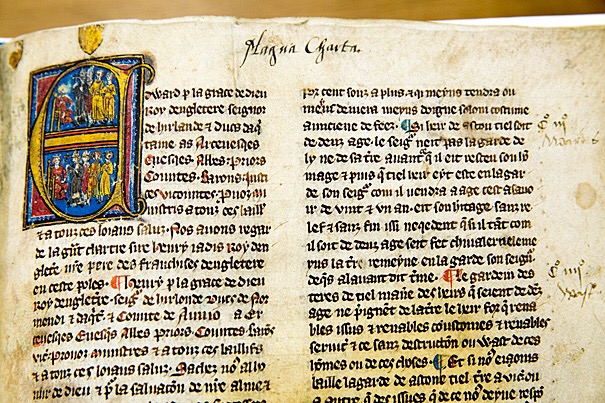 Magna Charta.
Edward p la grace de dieu
Roy dengletere seignor
de Hirlande & Ducs daq
taine as Arceuesqes
Euesqes Abbes Priors
Countes Barons Justi
ces vicountes Prouoz mi
nistris a touz ces baill
& a touz ces loiaus saluz. Nos auons regar
de la gñt chartre sire henry iadis roy den
gletre nre pere des franchises dengletere
en ceste poles. henry p la grace de dieu
Roy dengletere seigr de hirlonde Ducs de Nor
mendi & daqt & Counte de a Er
ceuesqes Euesqs Abbes Priors Countes baros
vic Prouoz ministres & a touz ces baillifs
& a touz ces loiaus saluz. Sachez no ally
nur de dieu & p la saluacōn de nre alme &
por cent souz a plus & qi meyns tendra ou
deuera meyns doigne solom coustume
aunciene de feez. Si heir de ascou tiel soit
de deuz age le seigr neit pas la garde de
ly ne de sa tre auant q il eit resceu son ho
mage & puis q tiel heir eyt este en lagar
de son seigr com il viendra a age cest a sauo
ir de vint & un an eit son heitage sanz re
lef & sanz fin issi neqedent q si il tāt com
il soit de deuz age seit fet chiualer ieleme
yns la tre remeyne en la garde son seigr
deqs al auant dit tme. Le gardein des
teres de tiel maūe des heirs q seient de dez
age ne pigne de la tre le heir for q rena
bles issus & renables coustomes & renables
seruic & ce sanz destruccōn ou wast de ces
homes ou de ces choses. Et si no eioms
baille la garde de ascone tiel tre a vic ou
a autre q des issues de ce no deyue respo